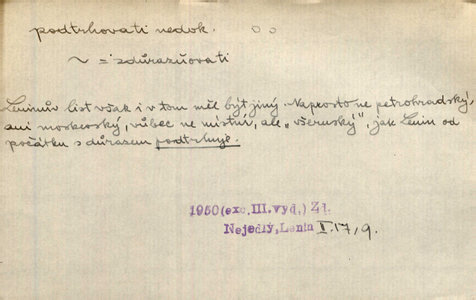 podtrhovati nedok.
~ = zdůrazňovati
Leninův list však i v tom měl být jiný. Naprosto ne petrohradský,
ani moskevský, vůbec ne místní, ale „všeruský", jak Lenin od
počátku s důrazem podtrhuje.
1950 (exc. III. vyd.) Zl.
Nejedlý, Lenin II. 17, 9.